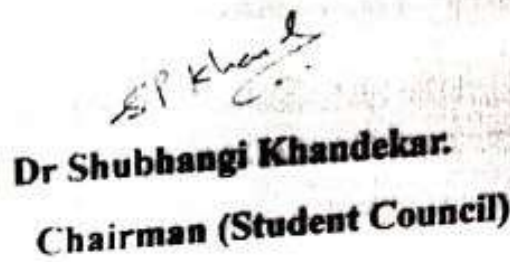 SP Khand
Dr Shubhangi Khandekar.
Chairman (Student Council)